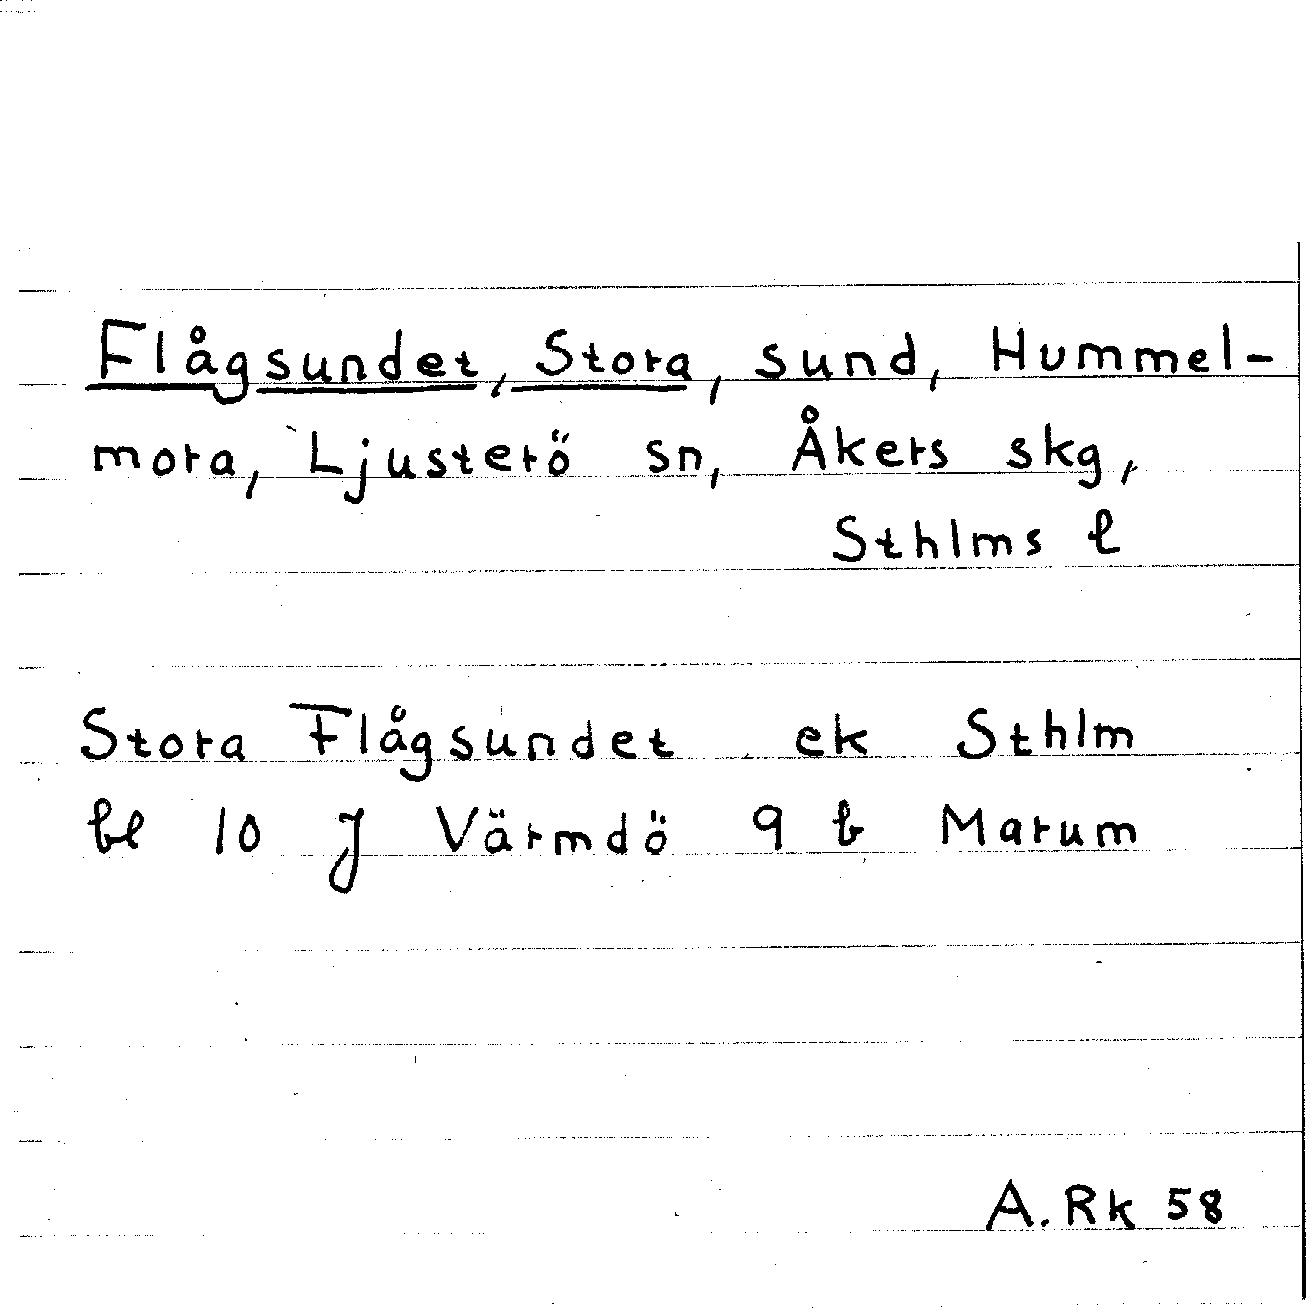 Flågsundet, Stora, sund, Hummel-
mora, Ljusterö sn, Åkers skg,
Sthlms l
Stora Flågsundet ek Sthlm
bl 10 J Värmdö 9 b Marum
A. Rk 58